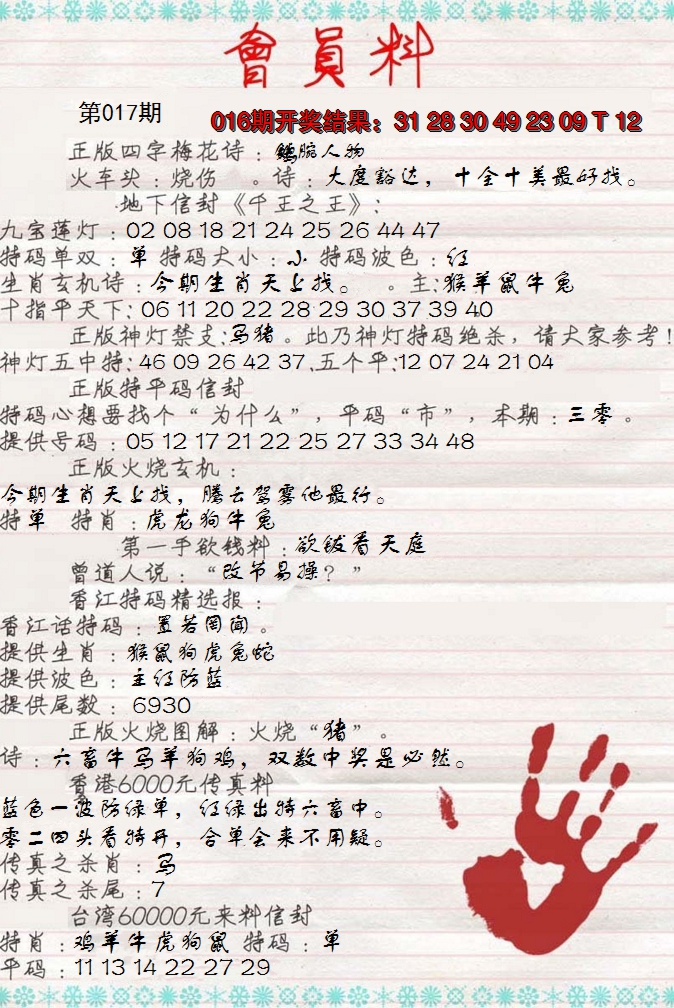 會員料
第017期
016期开奖结果：31 28 30 49 23 09 T 12
正版四字梅花诗：铁腕人物
火车头：烧伤 。诗：大度豁达，十全十美最好找。
地下信封《千王之王》：
九宝莲灯：02 08 18 21 24 25 26 44 47
特码单双：单 特码大小：小 特码波色：红
生肖玄机诗：今期生肖天上找。 。主：猴羊鼠牛兔
十指平天下：06 11 20 22 28 29 30 37 39 40
正版神灯禁支：马猪。此乃神灯特码绝杀，请大家参考！
神灯五中特：46 09 26 42 37.五个平：12 07 24 21 04
正版特平码信封
特码心想要找个“为什么”，平码“市”，本期：三零。
提供号码：05 12 17 21 22 25 27 33 34 48
正版火烧玄机：
今期生肖天上找，腾云驾雾他最行。
特单 特肖：虎龙狗牛兔
第一手欲钱料：欲钱看天庭
曾道人说：“改节易操？”
香江特码精选报：
香江话特码：置若罔闻。
提供生肖：猴鼠狗虎兔蛇
提供波色：主红防蓝
提供尾数：6930
正版火烧图解：火烧“猪”。
诗：六畜牛马羊狗鸡，双数中奖是必然。
香港6000元传真料
蓝色一波防绿单，红绿出特六畜中。
零二四头看特开，合单会来不用疑。
传真之杀肖：马
传真之杀尾：7
台湾60000元来料信封
特肖：鸡羊牛虎狗鼠 特码：单
平码：11 13 14 22 27 29